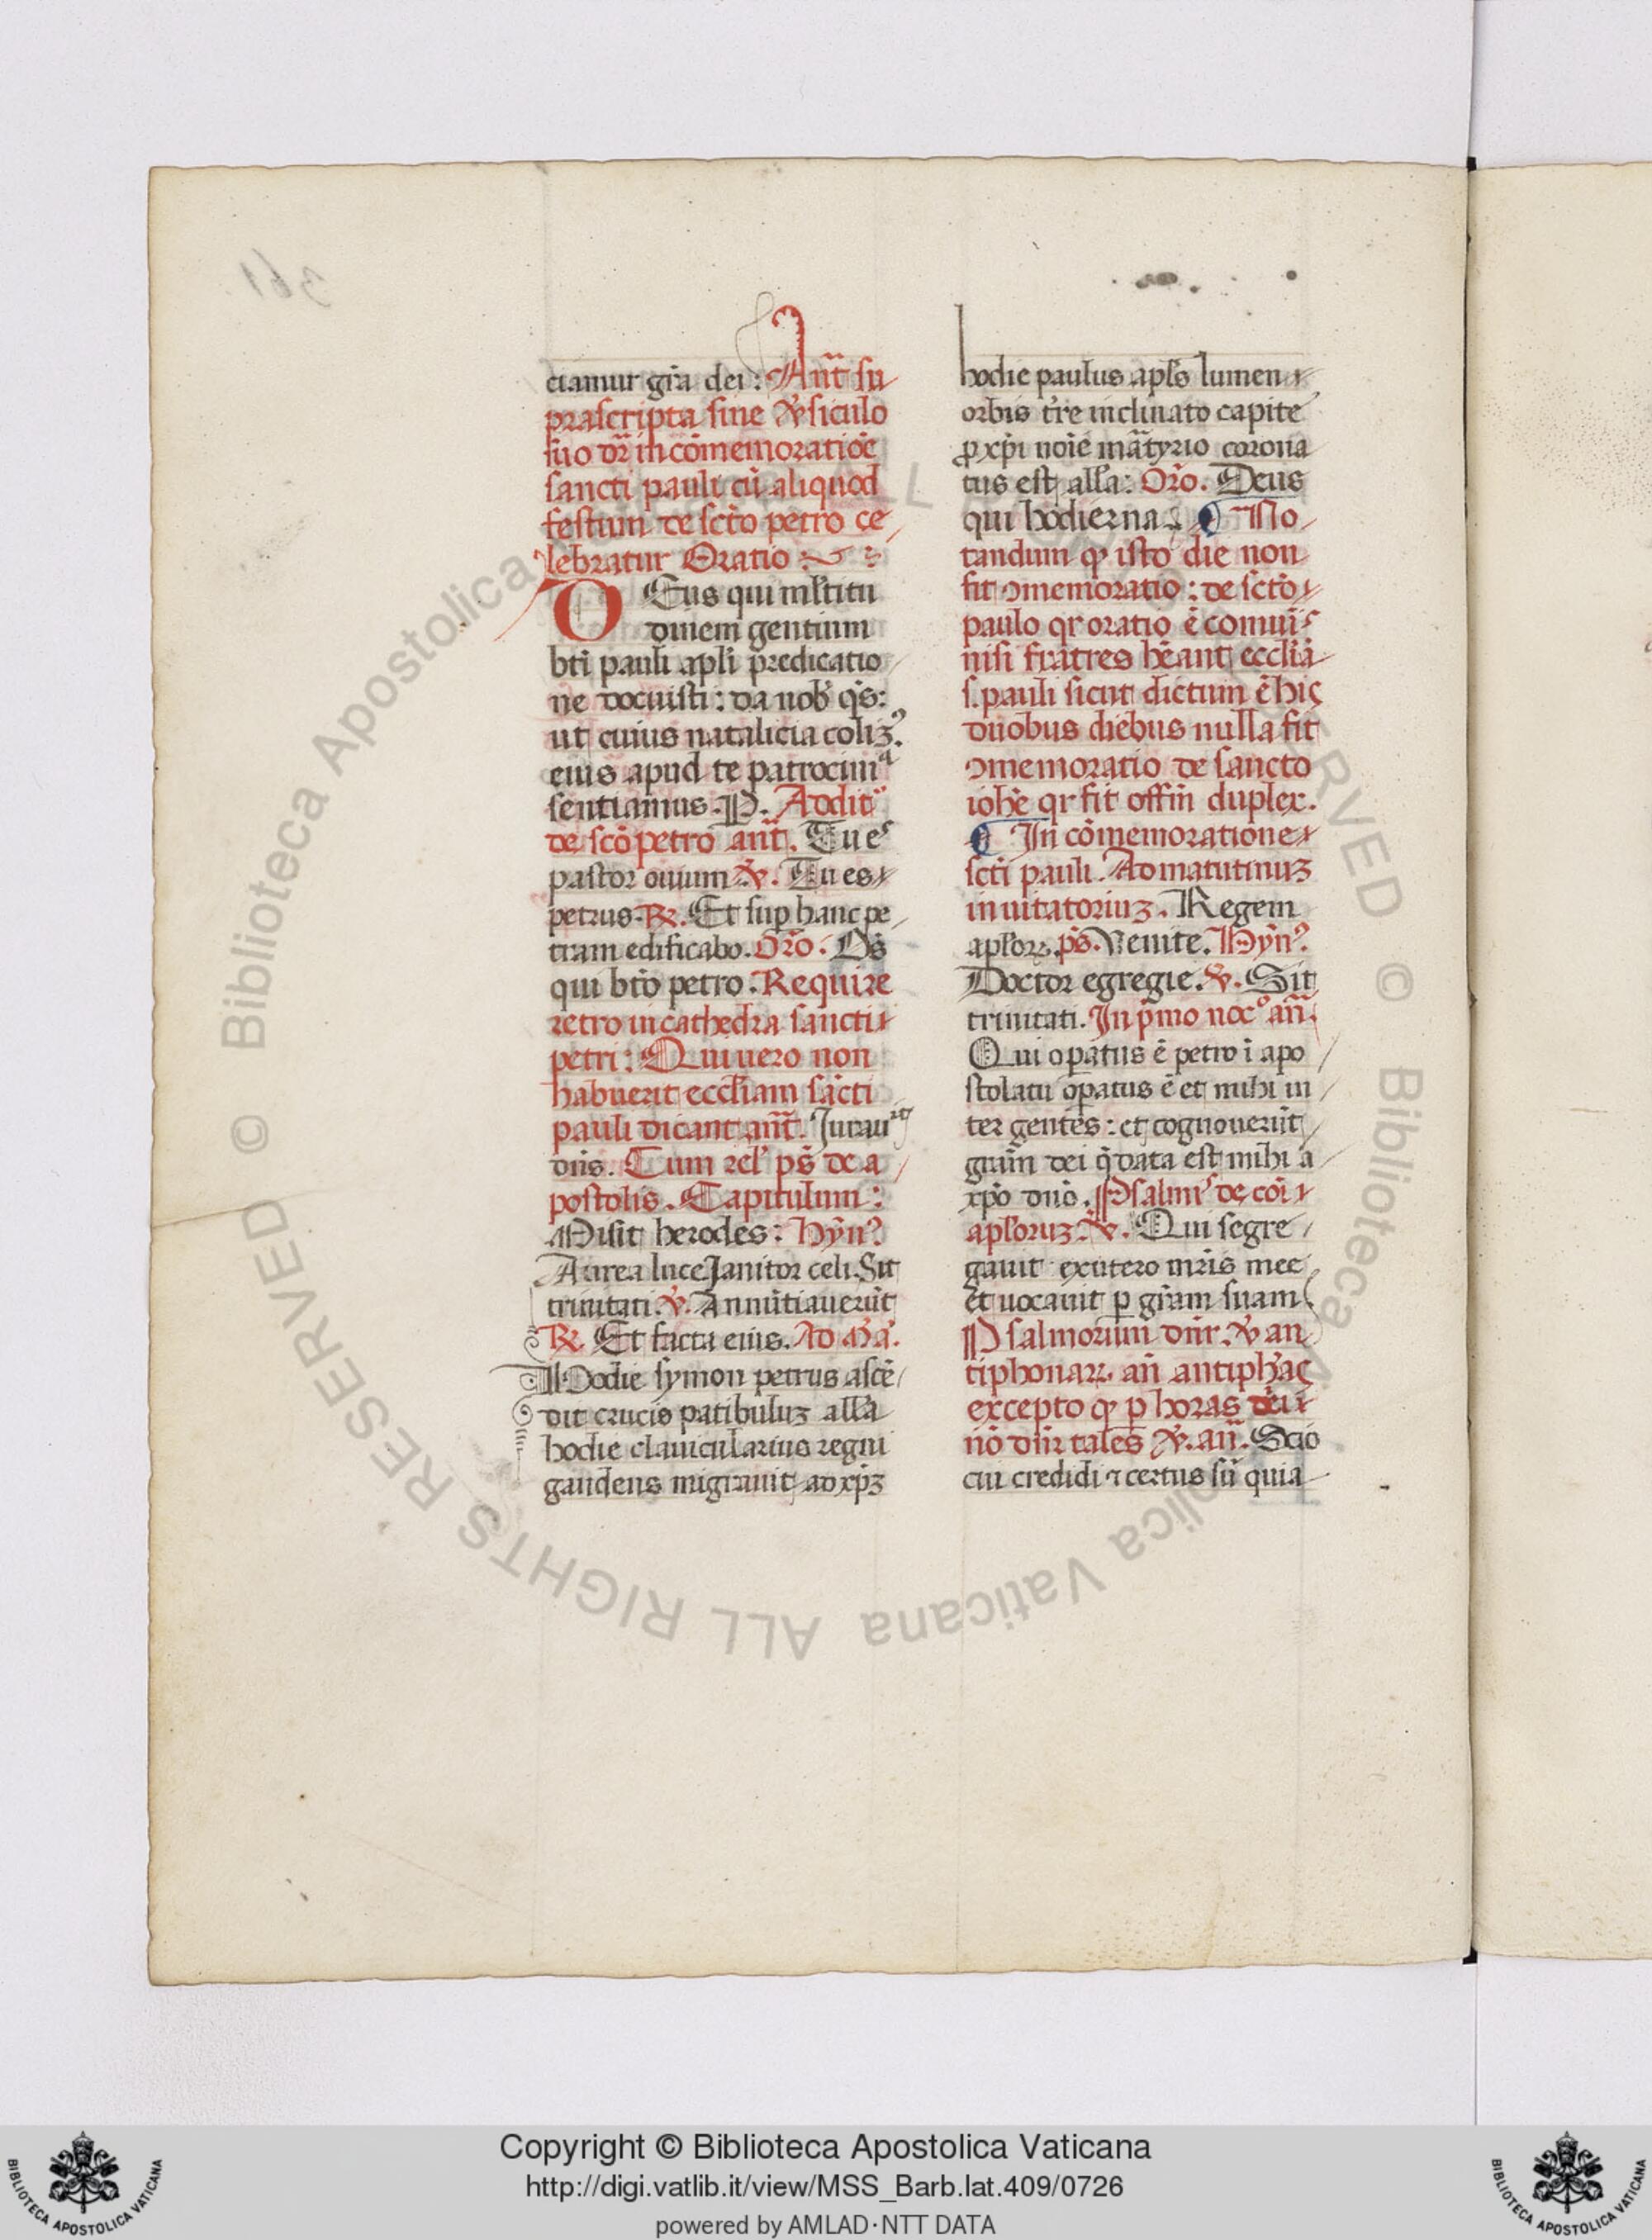 ciamur gr̃a dei: Añt su
prascripta sine v̾siculo
suo dr̃ in cõmemoratiõe
sancti pauli cũ aliquod
festum de scto petro ce
lebratur Oratio:
DEus qui ml̃titu
dinem gentium
bti pauli apl̃i predicatio
ne docuisti: da nob̾ q̃s:
ut cuius natalicia coliꝫ.
eius apud te patrociniᵃ
sentiamus. P. Addit᷒
de scõ petro añt. Tu es
pastor ouium ℣. Tu es
petrus. ℟. Et sup hanc pe
tram edificabo. Or̃o. Ds̃
qui btõ petro. Require
retro in cathedra sancti
petri: Qui uero non
habuerit eccl̃iam sãcti
pauli dicant añt. Iurauit
dñs. Cum rel̾ ps̃ de a
postolis. Capitulum:
Misit herodes: Hyñ᷒
Aurea luce Janitor celi. Sit
trinitati. ℣. Annũtiauerũt
℟. Et facta eius. Ad Mᵃ.
Hodie symon petrus ascẽ
dit crucis patibuluꝫ all̃a
hodie clauicularius regni
gaudens migrauit ad xp̃ꝫ
hodie paulus apl̃s lumen
orbis tr̃e inclinato capite
ꝓ xp̃i noĩe mãtyrio corona
tus est all̃a: Or̃o. Deus
qui hodierna. No
tandum ꝙ isto die non
fit ꝯmemoratio: de sctõ
paulo qr oratio ẽ comuĩs
nisi fratres hẽant eccl̃iã
s. pauli sicut dictum ẽ hic
duobus diebus nulla fit
ꝯmemoratio de sancto
ioh̃e qr fit offiñ duplex.
In cõmemoratione
scti pauli. Ad matutinuꝫ
inuitatoriuꝫ. Regem
apl̃oꝝ. ps̃. Venite. Hyñ᷒.
Doctor egregie. ℣. Sit
trinitati. In p̃mo nocº. añ.
Qui opatus ẽ petro ĩ apo
stolatu opatus ẽ et mihi in
ter gentes: et cognouerũt
grãm dei q̃ data est mihi a
xpõ dño. Psalmi de coĩ
apl̃oruꝫ. ℣. Qui segre
gauit ex utero mr̃is mee
et uocauit p gr̃am suam
Psalmorum dñr. ℣ an
tiphonaꝝ. añ antiphãs
excepto ꝙ p horas dei
nõ dñr tales ℣. añ. Scio
cui credidi ⁊ certus sũ quia
Copyright © Biblioteca Apostolica Vaticana
http://digi.vatlib.it/view/MSS_Barb.lat.409/0726
powered by AMLAD·NTT DATA
BIBLIOTECA APOSTOLICA VATICANA
BIBLIOTECA APOSTOLICA VATICANA
© Biblioteca Apostolica Vaticana ALL RIGHTS RESERVED